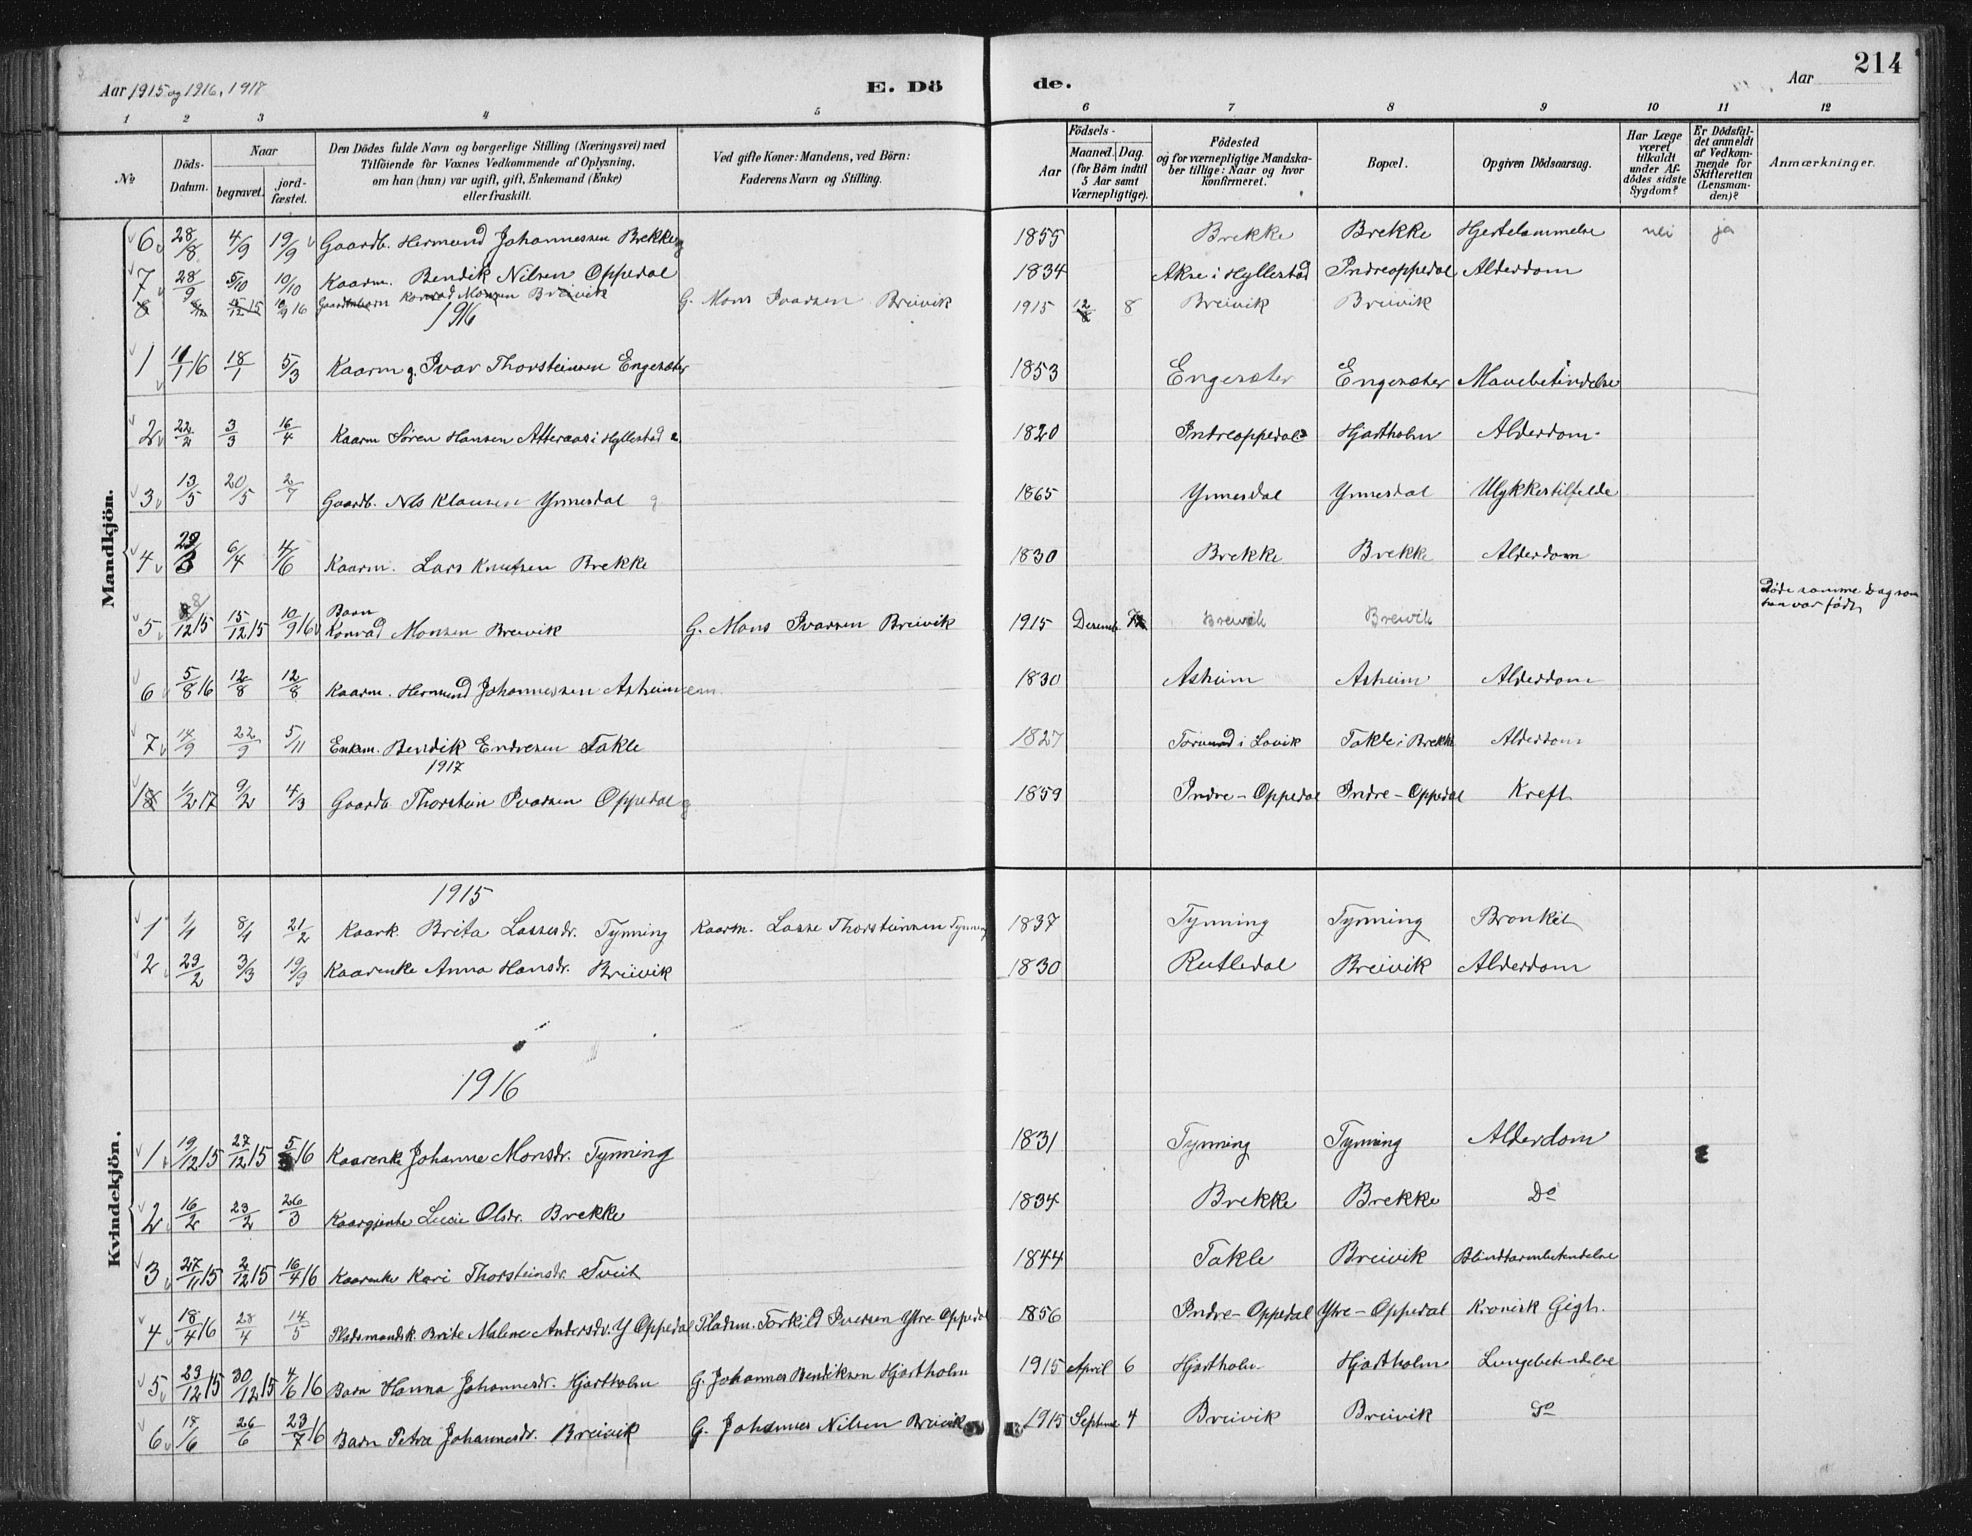 Aar 1915 og 1916, 1917 E. Dö de. Aar 214
1 2 3 4 5 6 7 8 9 10 11 12
No Döds-Datum. Naar begravet. jordfæstet. Den Dödes fulde Navn og borgerlige Stilling (Næringsvei) med Tilföiende for Voxnes Vedkommende af Oplysning, om han (hun) var ugift, gift, Enkemand (Enke) eller fraskilt. Ved gifte Koner: Mandens, ved Börn: Faderens Navn og Stilling. Födsels- Aar Maaned. Dag. (for Börn indtil 5 Aar samt Værnepligtige). Födested og for værnepligtige Mandskaber tillige: Naar og hvor konfirmeret. Bopæl. Opgiven Dödsaarsag. Har Læge været tilkaldt under Afdödes sidste Sygdom? Er Dödsfaldet anmeldt af Vedkommende for Skifteretten (Lensmanden)? Anmærkninger.
Mandkjön.
6 28/8 4/9 19/9 Gaardb. Hermund Johannessen Brekke g 1855 Brekke Brekke Hjertelammelse nei ja
7 28/9 5/10 10/10 Kaarm. Bendik Nilsen Oppedal 1834 Akse i Hyllestad Indreoppedal Alderdom
8 8/12 15/12 15 10/9 16 Gaardmbarn Konrad Monsen Breivik G. Mons Ivarsen Breivik 1915 12 8 Breivik Breivik
1916
1 11/1 16 18/1 5/3 Kaarm g. Ivar Thorsteinsen Engesæter 1853 Engesæter Engesæter Mavebetændelse
2 22/2 3/3 16/4 Kaarm Søren Hansen Atteraas i Hyllestad e 1820 Indreoppedal Hjartholm Alderdom
3 13/5 20/5 2/7 Gaardb. Nils Klausen Ynnesdal g 1865 Ynnesdal Ynnesdal Ulykkestilfelde
4 29/3 6/4 4/6 Kaarm. Lars Knutsen Brekke 1830 Brekke Brekke Alderdom
5 8/12 15 15/12 15 10/9 16 Barn Konrad Monsen Breivik G. Mons Ivarsen Breivik 1915 Desemb. Breivik Breivik Døde samme Dag som han var født
6 5/8 16 12/8 12/8 Kaarm. Hermund Johannessen Asheim em 1830 Asheim Asheim Alderdom
7 14/9 22/9 5/11 Enkm. Bendik Endresen Takle 1827 Torvund i Lavik Takle i Brekke Alderdom
1917
1 1/2 17 9/2 4/3 Gaardb Thorstein Ivarsen Oppedal g 1859 Indre-Oppedal Indre-Oppedal Kreft
Kvindekjön.
1915
1 1/4 8/4 21/2 Kaark. Brita Lassesdr. Tynning Kaarm. Lasse Thorsteinsen Tynning 1837 Tynning Tynning Bronkit
2 23/2 3/3 19/9 Kaarenke Anna Hansdr. Breivik 1830 Rutledal Breivik Alderdom
1916
1 19/12 15 27/12 15 5 16 Kaarenke Johanne Monsdr. Tynning 1831 Tynning Tynning Alderdom
2 16/2 23/2 26/3 Kaargjente Lusie Olsdr. Brekke 1834 Brekke Brekke Do
3 27/11 15 2/12 15 16/4 16 Kaarenke Kari Thorsteinsdr. Tveit 1844 Takle Breivik Blindtarmbetendelse
4 18/4 16 28/4 14/5 Pladsmandsk. Brite Malene Andersdr. Y Oppedal Pladsm. Torkild Iversen Ytre-Oppedal 1856 Indre-Oppedal Ytre-Oppedal Kronisk Gigt.
5 23/12 15 30/12 15 4/6 16 Barn Hanna Johannesdr. Hjartholm G. Johannes Bendiksen Hjartholm 1915 April 6 Hjartholm Hjartholm Lungebetendelse
6 18/6 26/6 23/7 16 Barn Petra Johannesdr. Breivik G. Johannes Nilsen Breivik 1915 Septmе 4 Breivik Breivik Do